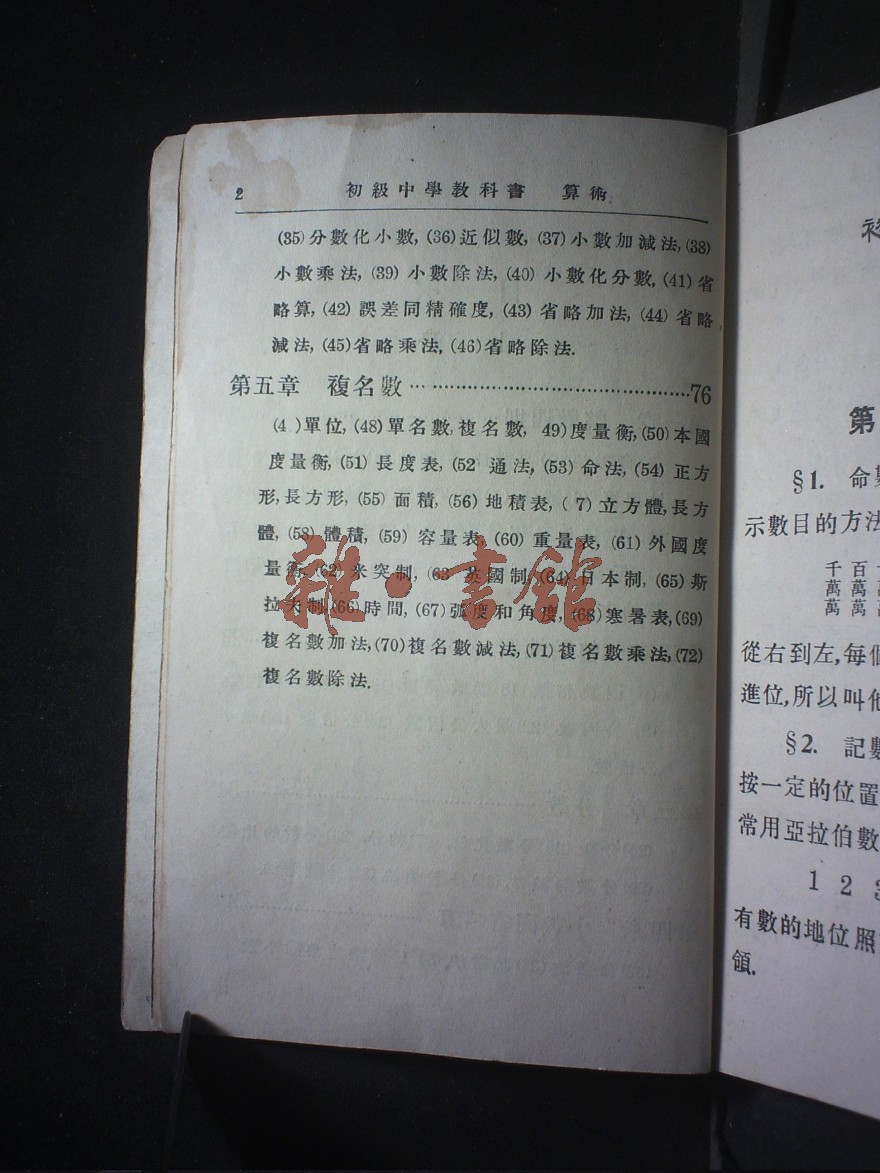 2 初級中學教科書 算術
(35)分數化小數, (36)近似數, (37)小數加減法, (38)
小數乘法, (39)小數除法, (40)小數化分數, (41)省
略算, (42)誤差同精確度, (43)省略加法, (44)省略
減法, (45)省略乘法, (46)省略除法.
第五章 複名數 76
(4 )單位, (48)單名數, 複名數, 49)度量衡, (50)本國
度量衡, (51)長度表, (52 通法, (53)命法, (54)正方
形, 長方形, (55)面積, (56)地積表, ( 7)立方體, 長方
體, (58)體積, (59)容量表, (60)重量表, (61)外國度
量衡, (62)米突制, (63 英國制, (64)日本制, (65)斯
拉夫制, (66)時間, (67)弧度和角度, (68)寒暑表, (69)
複名數加法, (70)複名數減法, (71)複名數乘法, (72)
複名數除法.
雜·書館
第
§1. 命數
示數目的方法
千百
萬萬
萬萬
從右到左, 每個
進位, 所以叫他
§2. 記數
按一定的位置
常用亞拉伯數
1 2 3
有數的地位照
領.